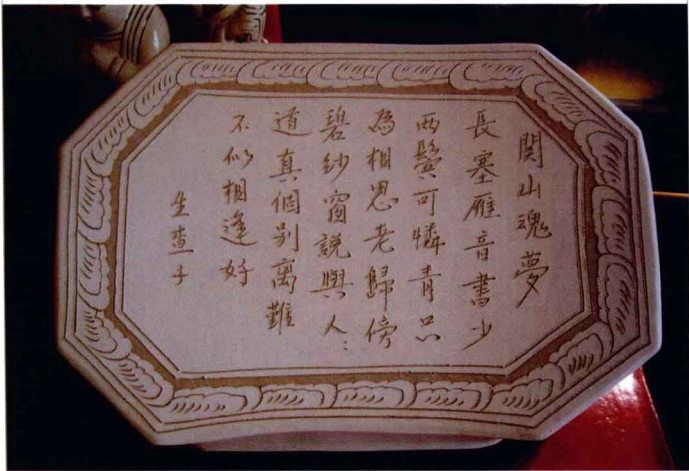 関山魂夢
長塞雁音書少
两鬢可憐青只
為相思老歸傍
碧紗窗説與人〻
道真個别离難
不似相逢好
生查子